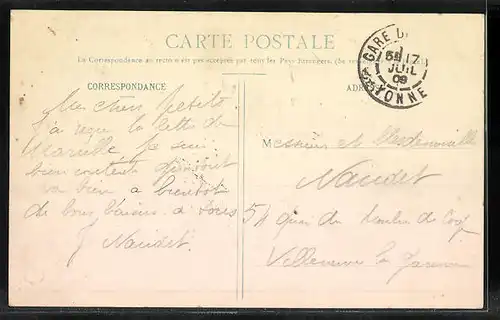 CARTE POSTALE
La Correspondance au recto n'est pas acceptée par tous les Pays Étrangers. (Se
CORRESPONDANCE
ADR
GARE D
17
JUIL
09
YONNE
Mes chers petits
J'ai reçu la lettre de
Marcelle je suis
bien content
va bien a bientot
de bons baisers a tous
J Naudet
Messieurs et Mesdemoiselle
Naudet
54 quai du Moulin de Cage
Villeneuve la Garenne